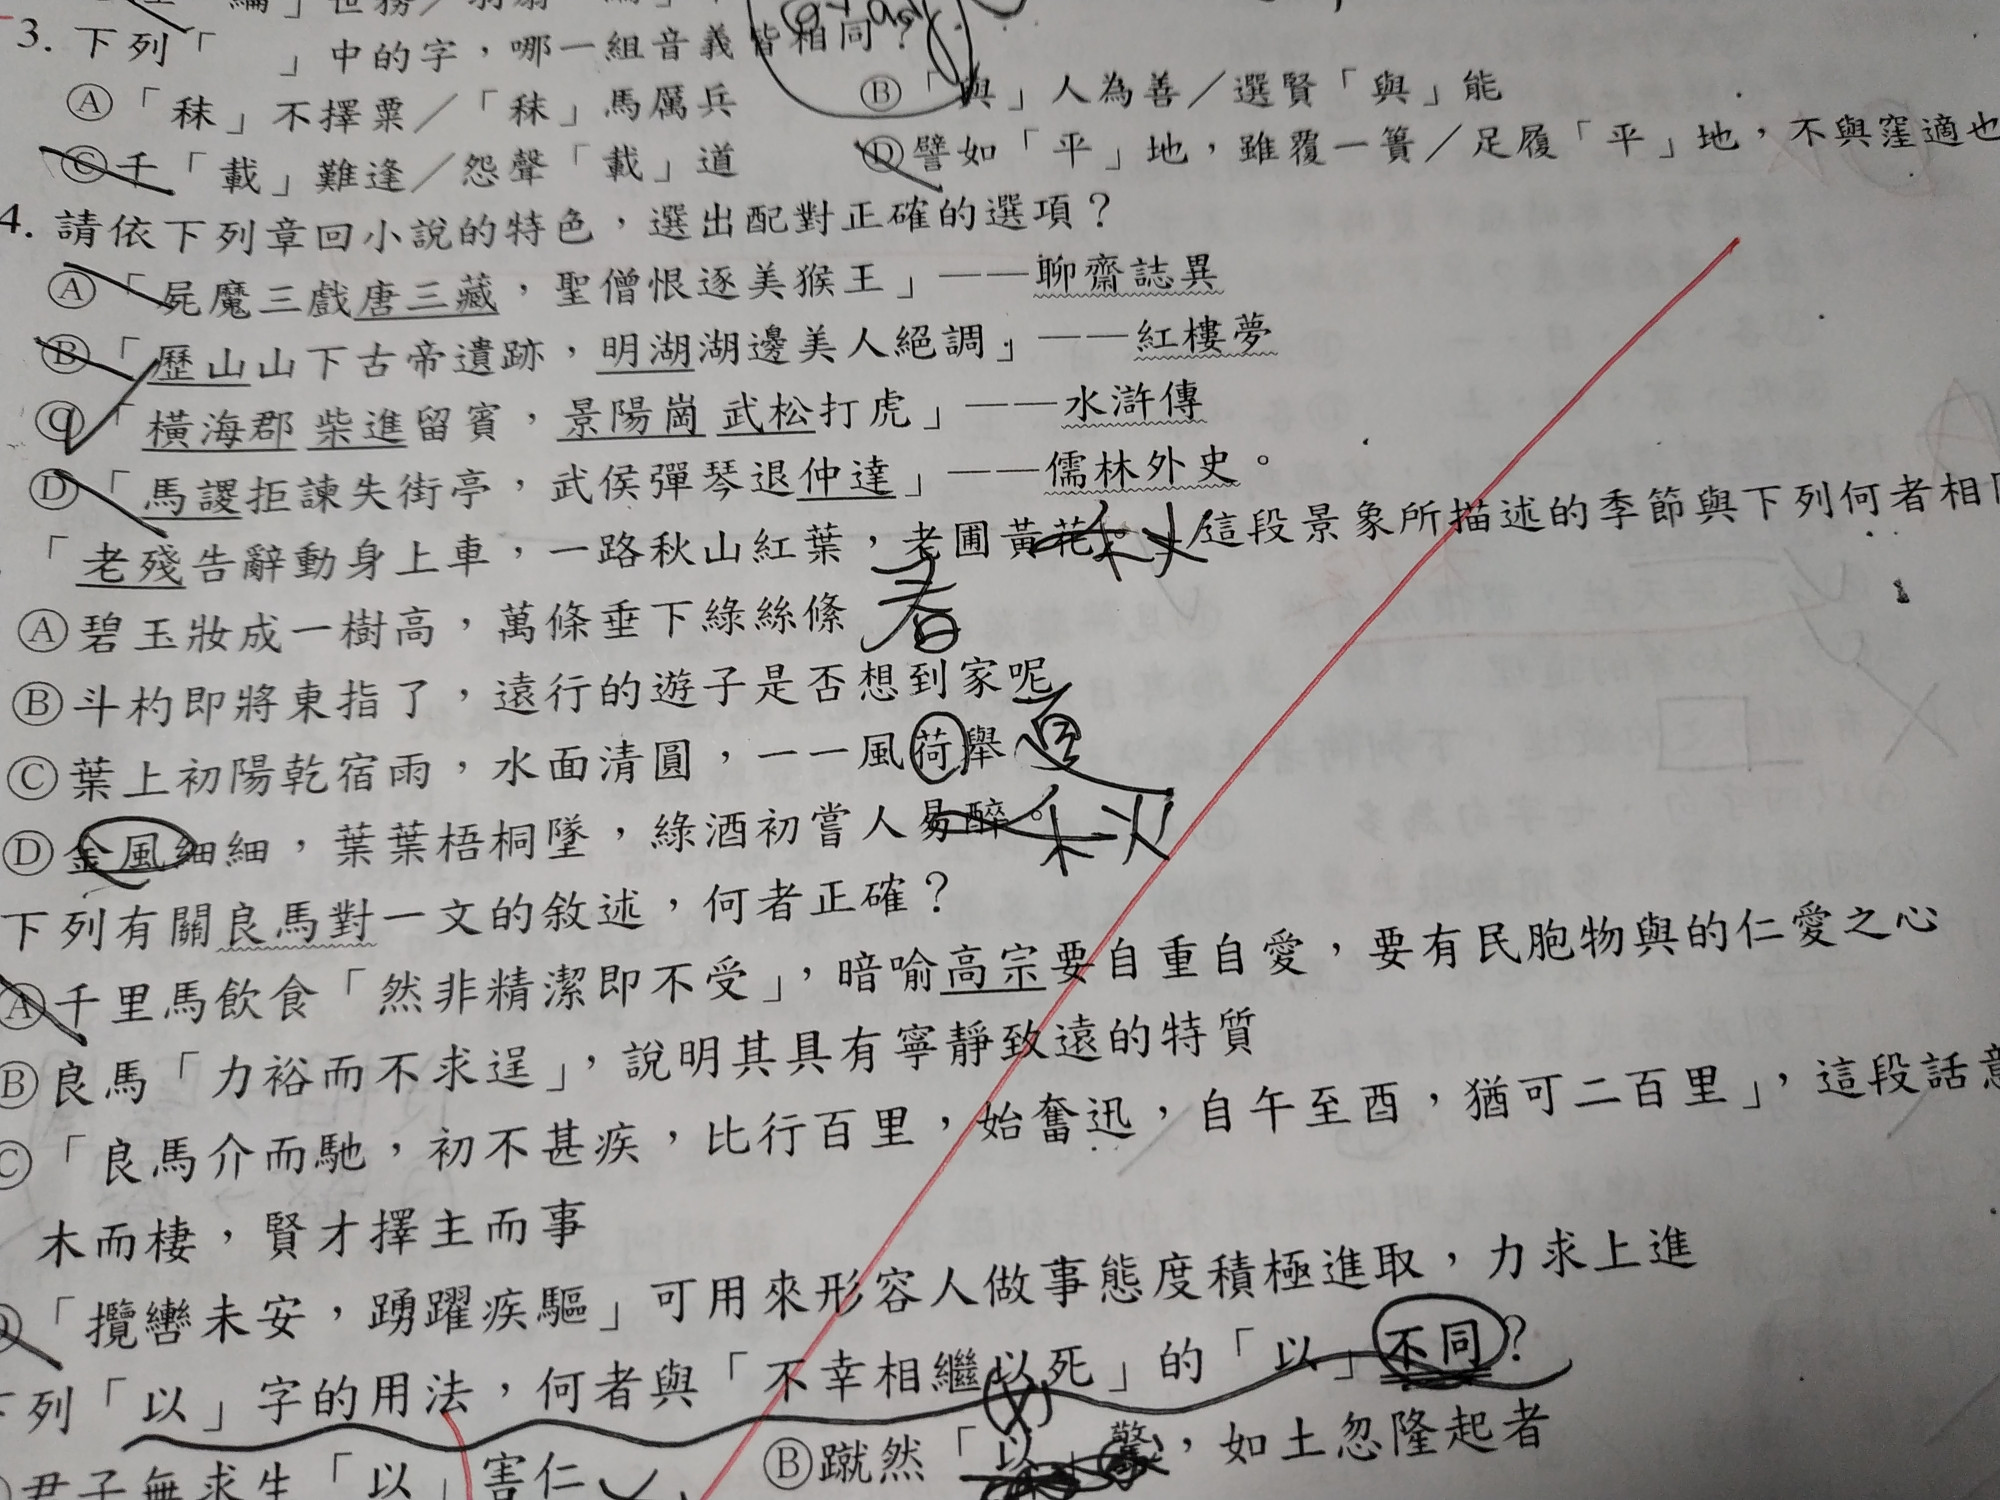 3. 下列「　」中的字，哪一組音義皆相同？
Ⓐ「秣」不擇粟／「秣」馬厲兵　Ⓑ「與」人為善／選賢「與」能
Ⓒ千「載」難逢／怨聲「載」道　Ⓓ譬如「平」地，雖覆一簣／足履「平」地，不與窪適也
4. 請依下列章回小說的特色，選出配對正確的選項？
Ⓐ「屍魔三戲唐三藏，聖僧恨逐美猴王」——聊齋誌異
Ⓑ「歷山山下古帝遺跡，明湖湖邊美人絕調」——紅樓夢
Ⓒ「橫海郡 柴進留賓，景陽崗 武松打虎」——水滸傳
Ⓓ「馬謖拒諫失街亭，武侯彈琴退仲達」——儒林外史。
「老殘告辭動身上車，一路秋山紅葉，老圃黃花。」這段景象所描述的季節與下列何者相 秋
Ⓐ碧玉妝成一樹高，萬條垂下綠絲絛 春
Ⓑ斗杓即將東指了，遠行的遊子是否想到家呢
Ⓒ葉上初陽乾宿雨，水面清圓，一一風荷舉 夏
Ⓓ金風細細，葉葉梧桐墜，綠酒初嘗人易醉。 秋
下列有關良馬對一文的敘述，何者正確？
Ⓐ千里馬飲食「然非精潔即不受」，暗喻高宗要自重自愛，要有民胞物與的仁愛之心
Ⓑ良馬「力裕而不求逞」，說明其具有寧靜致遠的特質
Ⓒ「良馬介而馳，初不甚疾，比行百里，始奮迅，自午至酉，猶可二百里」，這段話意
木而棲，賢才擇主而事
「攬轡未安，踴躍疾驅」可用來形容人做事態度積極進取，力求上進
列「以」字的用法，何者與「不幸相繼以死」的「以」不同？
君子無求生「以」害仁　Ⓑ蹴然「以」驚，如土忽隆起者